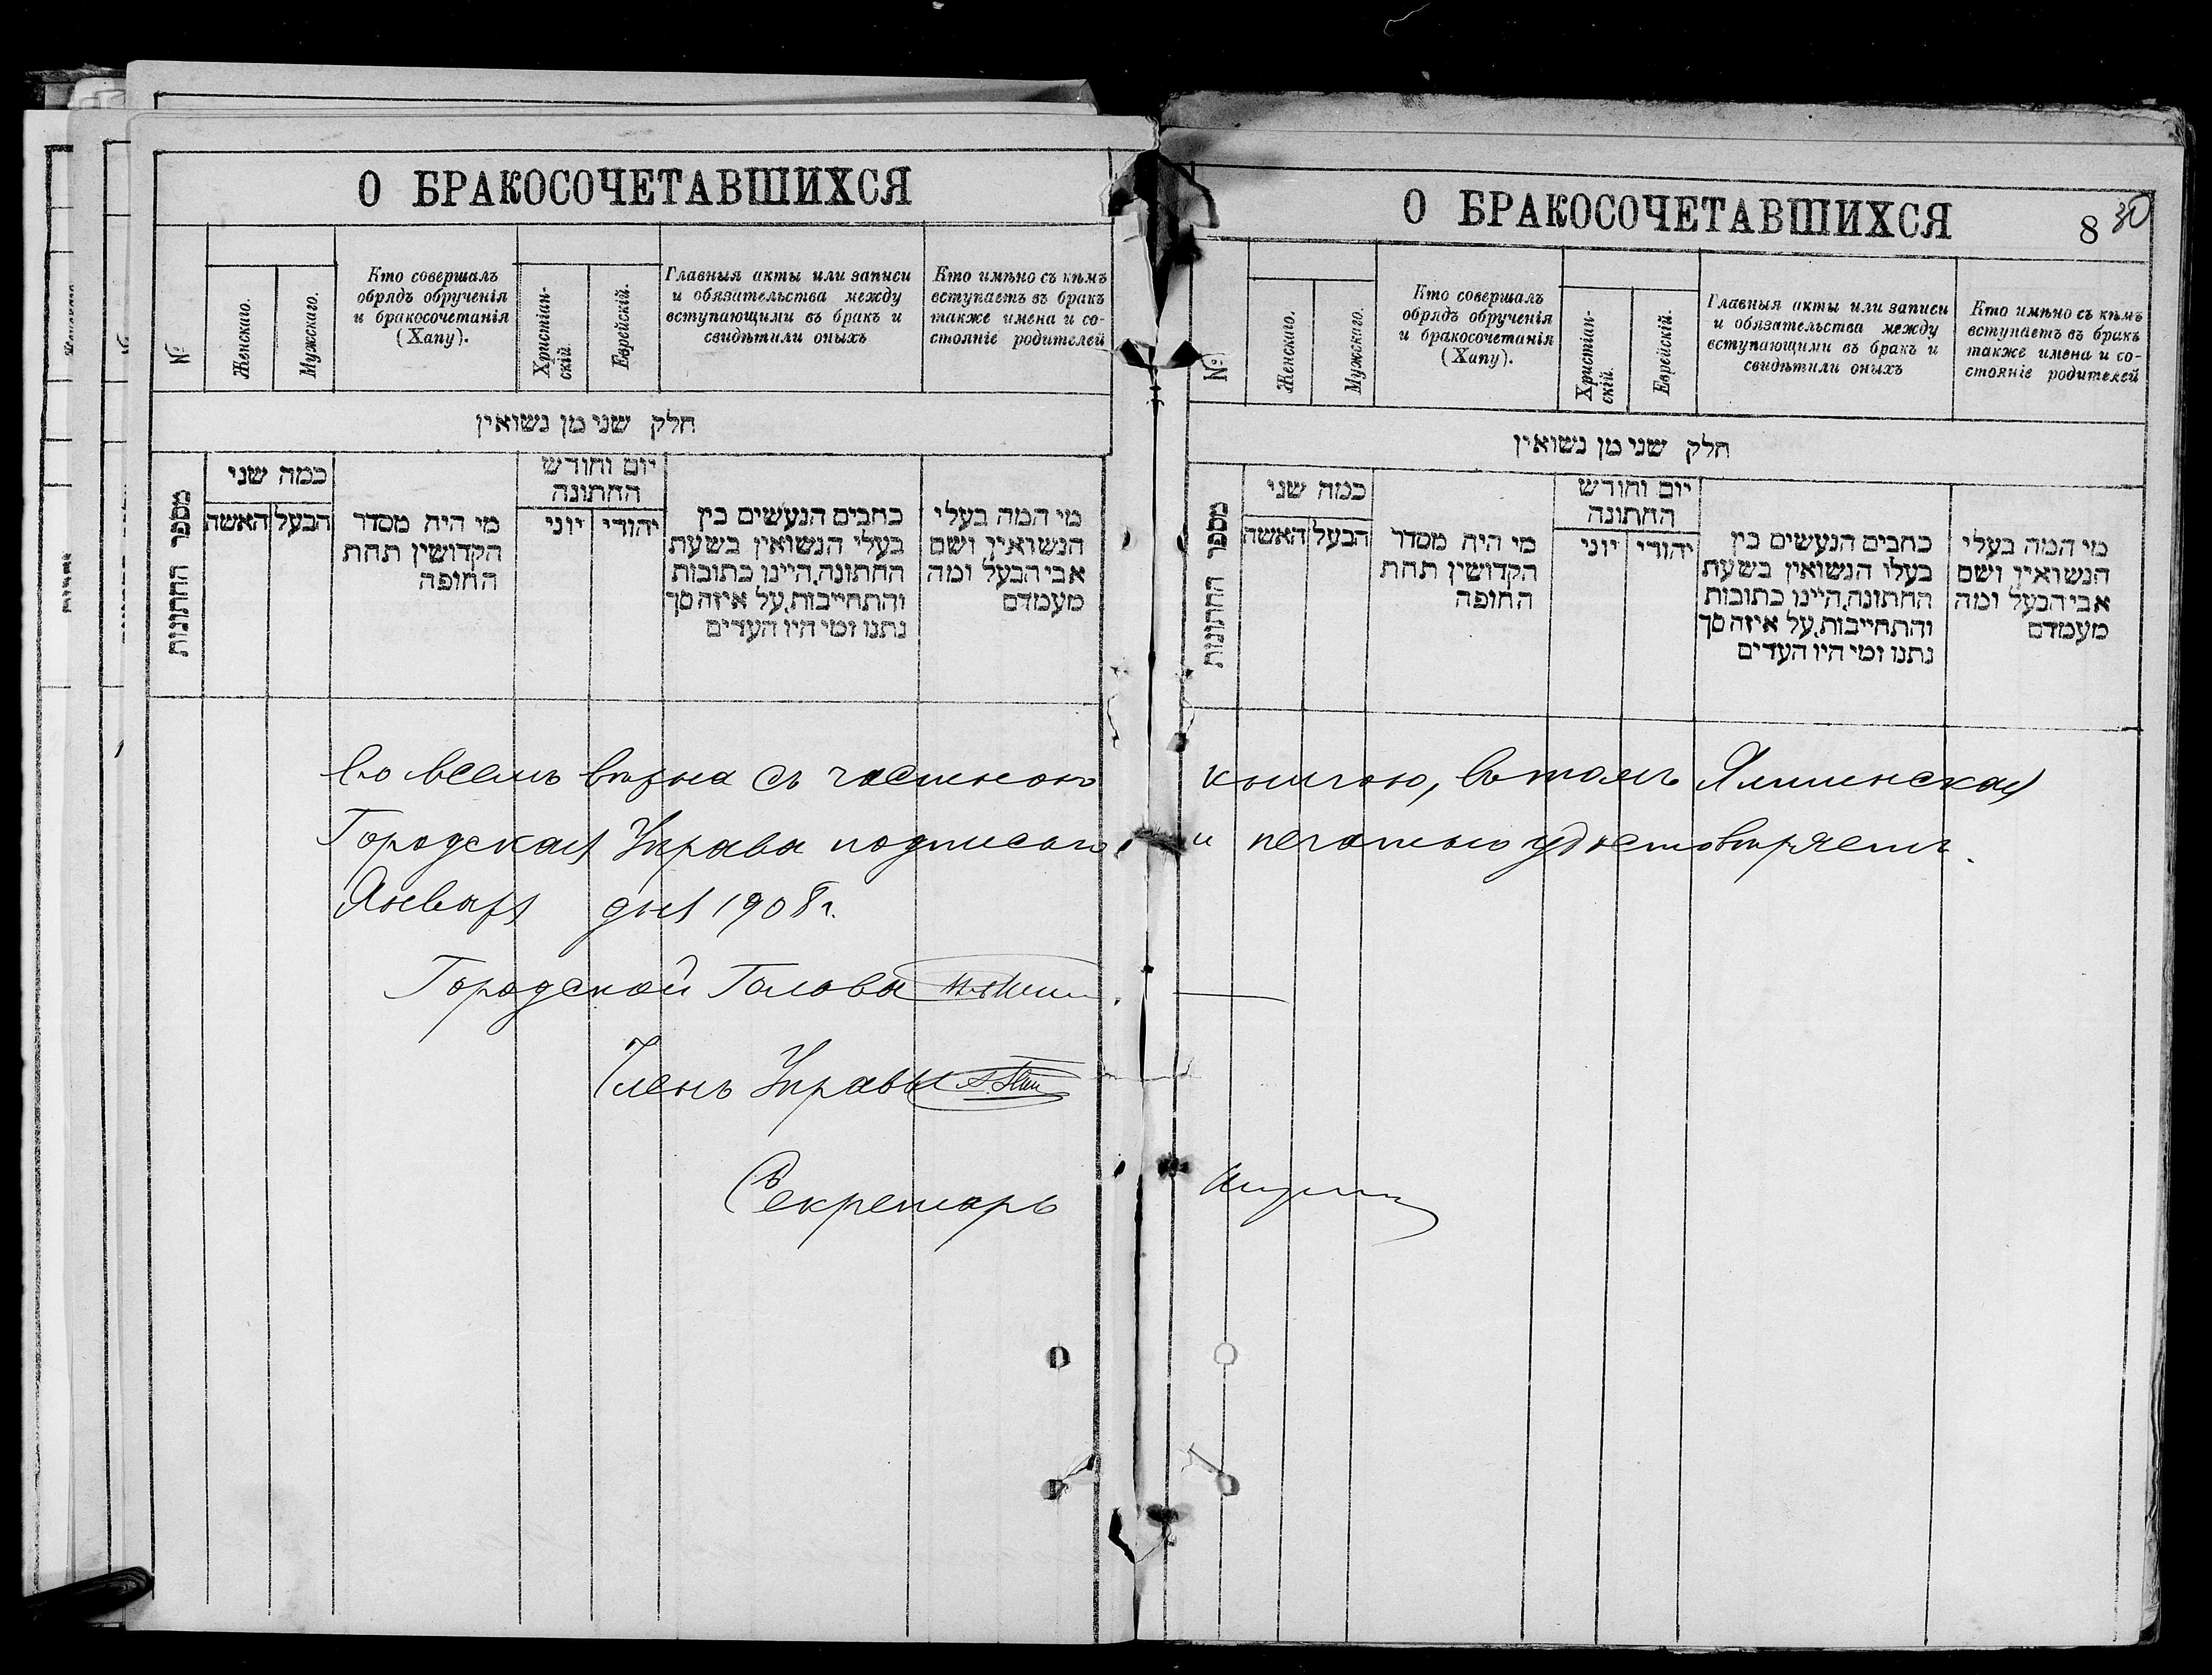 О БРАКОСОЧЕТАВШИХСЯ
№
Женскаго.
Мужскаго.
Кто совершалъ
обрядъ обрученія
и бракосочетанія
(Хапу).
Христіан-
скій.
Еврейскій.
Главныя акты или записи
и обязательства между
вступающими въ бракъ и
свидѣтили оныхъ
Кто имѣно съ кѣмъ
вступаетъ въ бракъ
также имена и со-
стояніе родителей
חלק שני מן נשואין
מספר החתונות
כמה שני
האשה
הבעל
מי היה מסדר
הקדושין תחת
החופה
יום וחודש
החתונה
יוני
יהודי
כתבים הנעשים בין
בעלי הנשואין בשעת
החתונה, היינו כתובות
והתחייבות, על איזה סך
נתנו ומי היו העדים
מי המה בעלי
הנשואין ושם
אבי הבעל ומה
מעמדם
во всемъ вѣрна съ частною
Городская Управа подписью
Января дня 1908 г.
Городской Голова
Членъ Управы
Секретарь
О БРАКОСОЧЕТАВШИХСЯ
8 30
№
Женскаго.
Мужскаго.
Кто совершалъ
обрядъ обрученія
и бракосочетанія
(Хапу).
Христіан-
скій.
Еврейскій.
Главныя акты или записи
и обязательства между
вступающими въ бракъ и
свидѣтили оныхъ
Кто имѣно съ кѣмъ
вступаетъ въ бракъ
также имена и со-
стояніе родителей
חלק שני מן נשואין
מספר החתונות
כמה שני
האשה
הבעל
מי היה מסדר
הקדושין תחת
החופה
יום וחודש
החתונה
יוני
יהודי
כתבים הנעשים בין
בעלו הנשואין בשעת
החתונה, היינו כתובות
והתחייבות, על איזה סך
נתנו ומי היו העדים
מי המה בעלי
הנשואין ושם
אבי הבעל ומה
מעמדם
книгою, въ томъ
и печатью удостовѣряетъ.